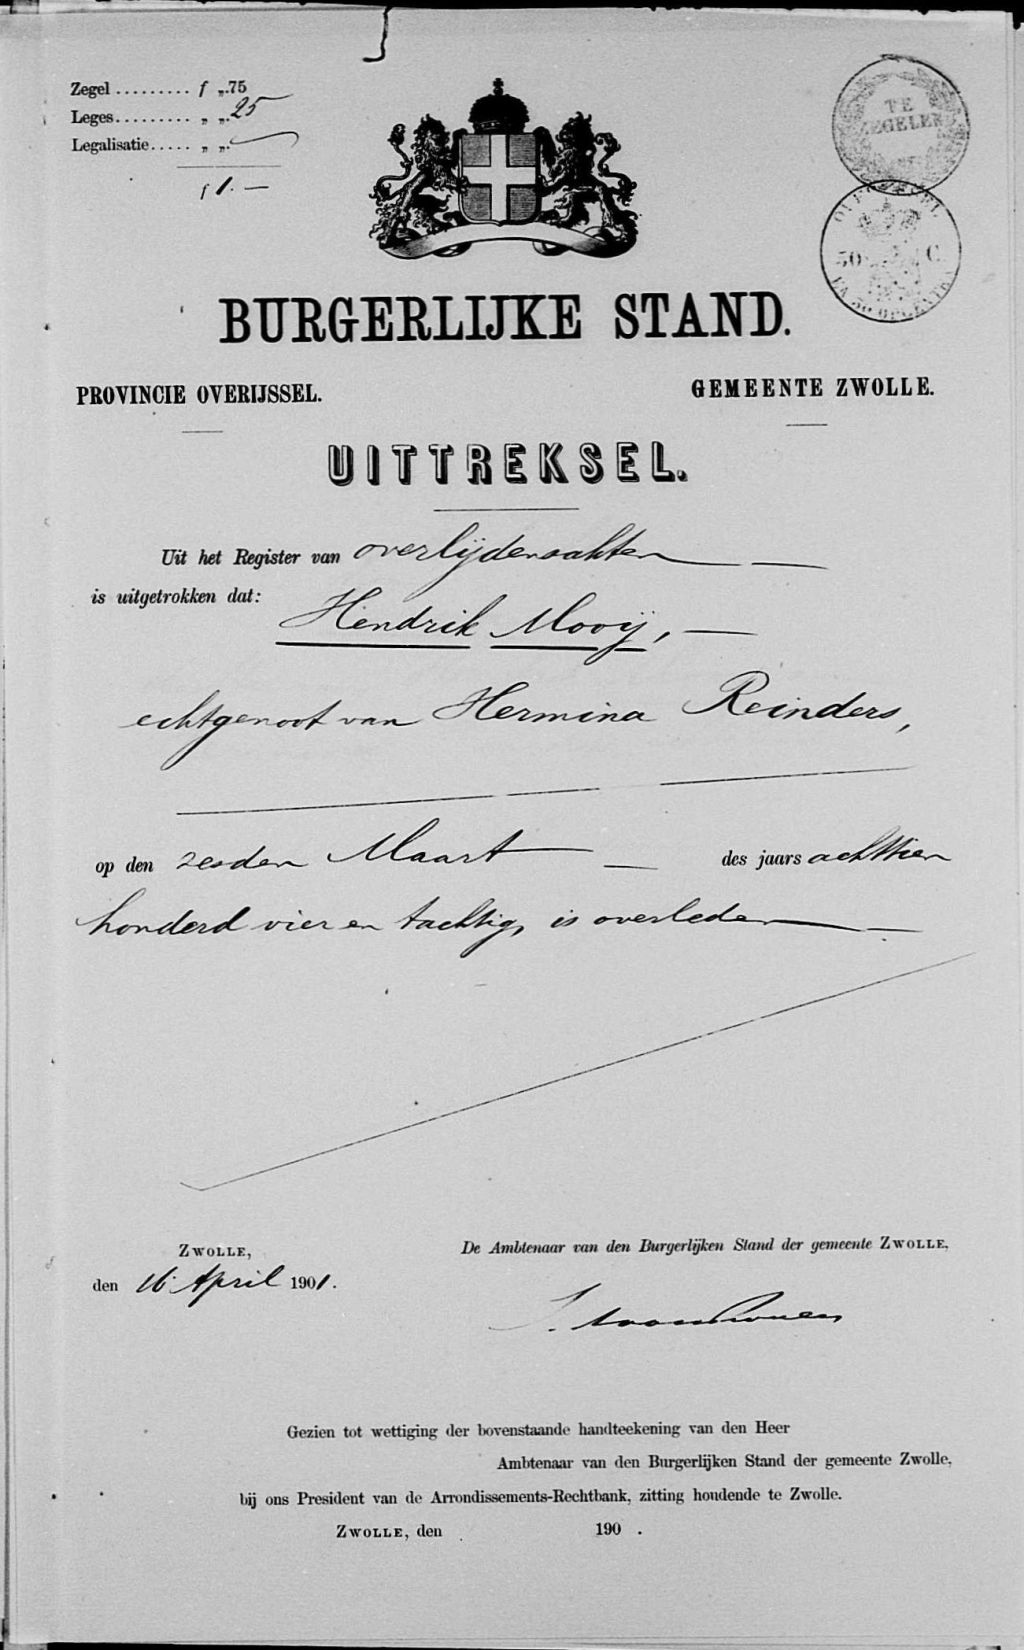 Zegel ......... f „.75
Leges......... „ „.25
Legalisatie..... „ „.
f 1.—
TE
ZEGELEN
OVERIJSSEL
50 C.
BURGERLIJKE STAND.
PROVINCIE OVERIJSSEL.
GEMEENTE ZWOLLE.
UITTREKSEL.
Uit het Register van overlijdensakten
is uitgetrokken dat:
Hendrik Mooij,
echtgenoot van Hermina Reinders,
op den zesden Maart des jaars achttien
honderd vier en tachtig, is overleden
ZWOLLE,
den 16 April 1901.
De Ambtenaar van den Burgerlijken Stand der gemeente ZWOLLE,
Gezien tot wettiging der bovenstaande handteekening van den Heer
Ambtenaar van den Burgerlijken Stand der gemeente Zwolle,
bij ons President van de Arrondissements-Rechtbank, zitting houdende te Zwolle.
ZWOLLE, den 190 .